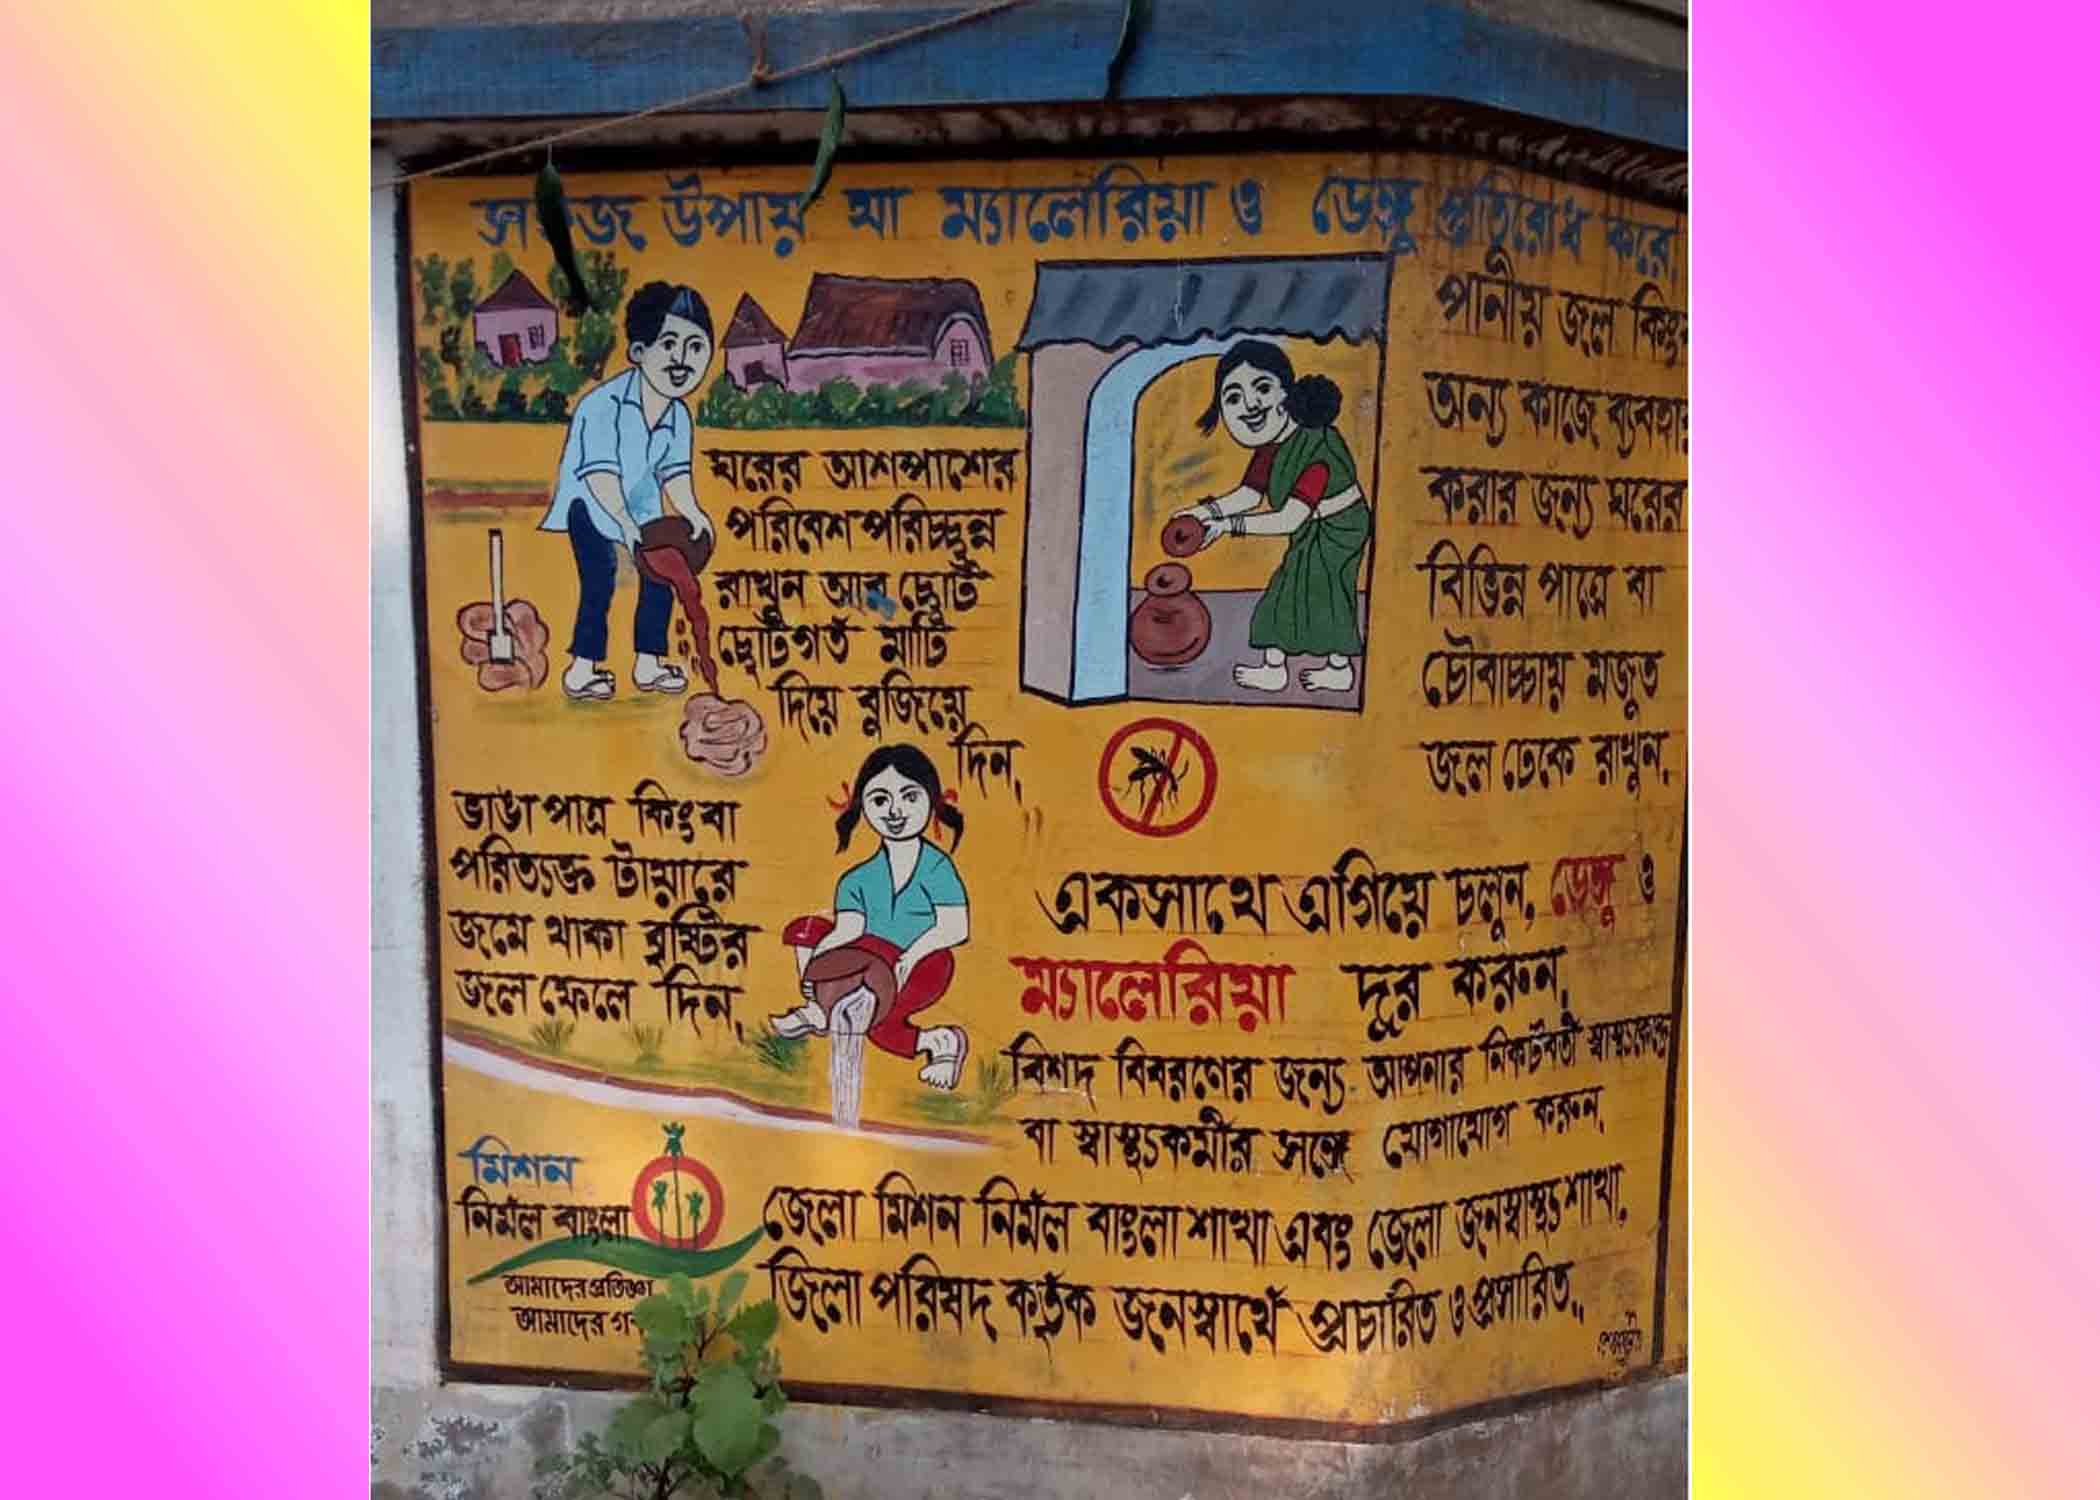 সহজ উপায় যা ম্যালেরিয়া ও ডেঙ্গু প্রতিরোধ করে,
ঘরের আশপাশের
পরিবেশ পরিচ্ছন্ন
রাখুন আর ছোট
ছোট গর্ত মাটি
দিয়ে বুজিয়ে
দিন,
পানীয় জল কিংবা
অন্য কাজে ব্যবহার
করার জন্য ঘরের
বিভিন্ন পাত্রে বা
চৌবাচ্চায় মজুত
জল ঢেকে রাখুন,
ভাঙা পাত্র কিংবা
পরিত্যক্ত টায়ারে
জমে থাকা বৃষ্টির
জল ফেলে দিন,
একসাথে এগিয়ে চলুন, ডেঙ্গু ও
ম্যালেরিয়া দূর করুন,
বিশদ বিবরণের জন্য আপনার নিকটবর্তী স্বাস্থ্যকেন্দ্র
বা স্বাস্থ্যকর্মীর সঙ্গে যোগাযোগ করুন,
মিশন
নির্মল বাংলা
আমাদের প্রতিজ্ঞা
আমাদের
জেলা মিশন নির্মল বাংলা শাখা এবং জেলা জনস্বাস্থ্য শাখা,
জিলা পরিষদ কর্তৃক জনস্বার্থে প্রচারিত ও প্রসারিত,,